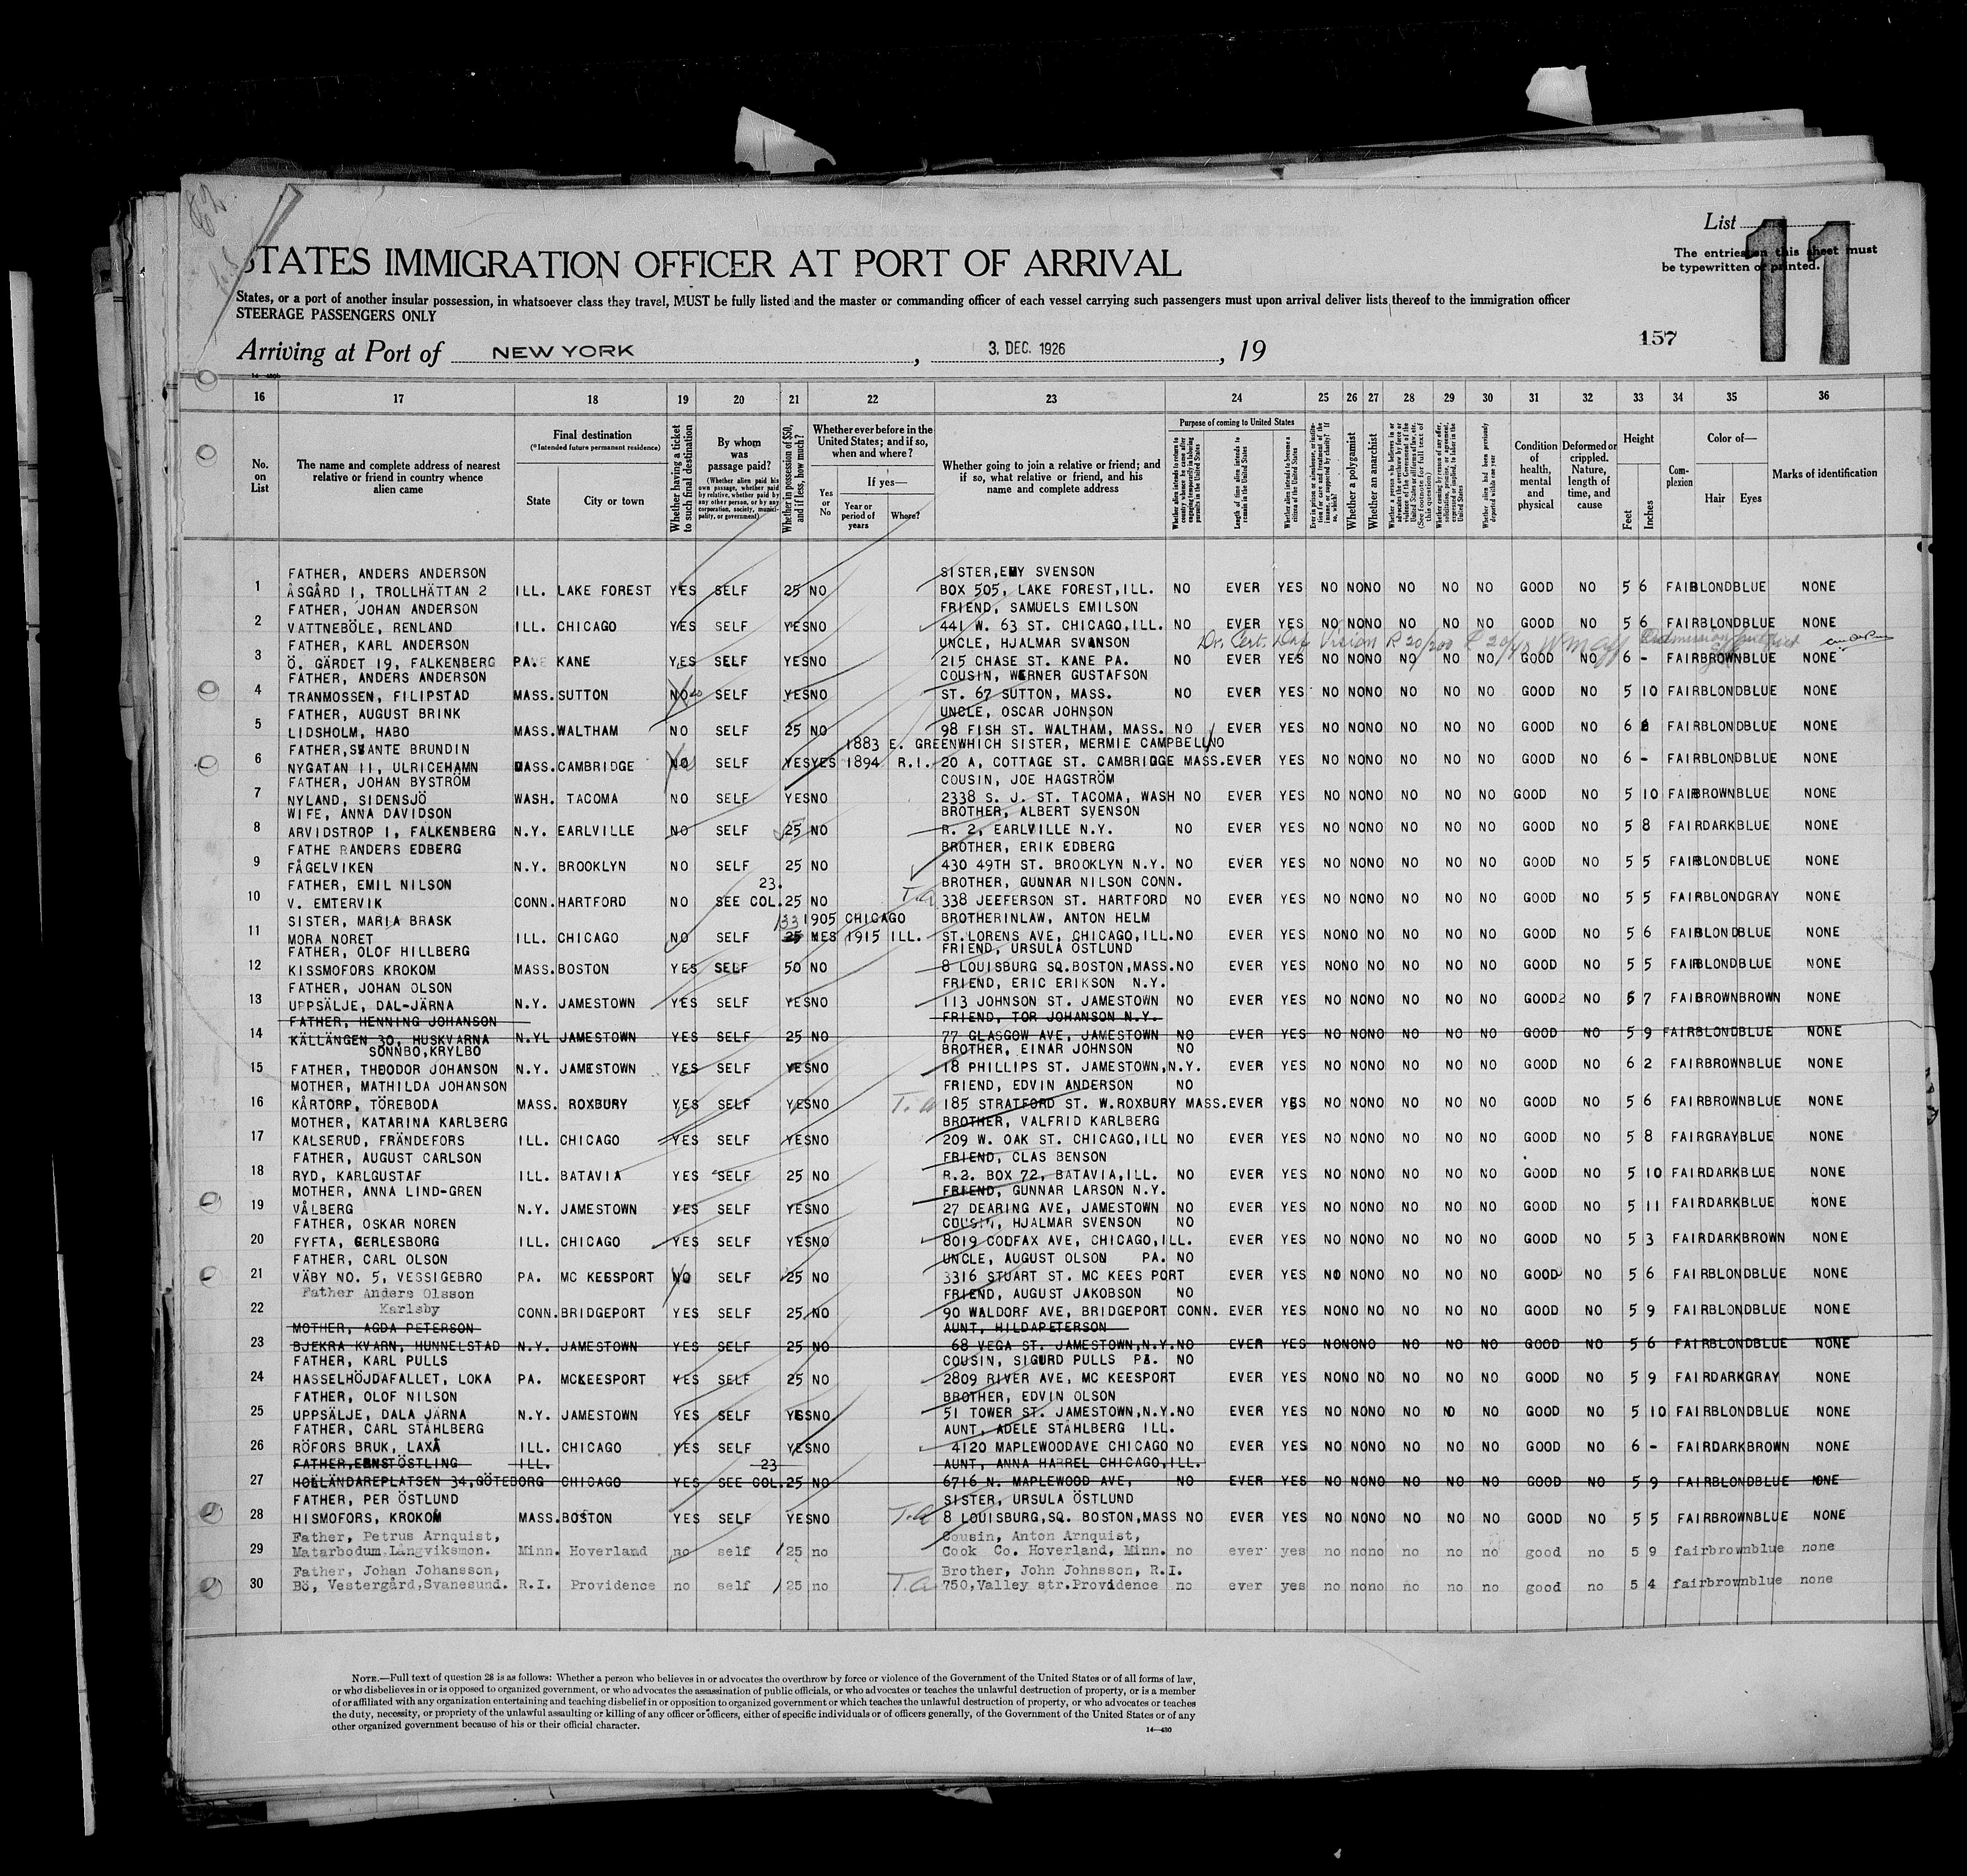 List
11
The entries on this sheet must
be typewritten or printed.
STATES IMMIGRATION OFFICER AT PORT OF ARRIVAL
States, or a port of another insular possession, in whatsoever class they travel, MUST be fully listed and the master or commanding officer of each vessel carrying such passengers must upon arrival deliver lists thereof to the immigration officer
STEERAGE PASSENGERS ONLY
157
Arriving at Port of NEW YORK , 3. DEC. 1926 , 19
16 17 18 19 20 21 22 23 24 25 26 27 28 29 30 31 32 33 34 35 36
No. on List
The name and complete address of nearest relative or friend in country whence alien came
Final destination
(*Intended future permanent residence)
State
City or town
Whether having a ticket to such final destination
By whom was passage paid?
(Whether alien paid his own passage, whether paid by relative, whether paid by any other person, or by any corporation, society, municipality, or government)
Whether in possession of $50, and if less, how much?
Whether ever before in the United States; and if so, when and where?
Yes or No
If yes—
Year or period of years
Where?
Whether going to join a relative or friend; and if so, what relative or friend, and his name and complete address
Purpose of coming to United States
Whether alien intends to return to country whence he came after engaging temporarily in laboring pursuits in the United States
Length of time alien intends to remain in the United States
Whether alien intends to become a citizen of the United States
Whether a polygamist
Whether an anarchist
Whether alien had been previously deported within one year
Condition of health, mental and physical
Deformed or crippled. Nature, length of time, and cause
Height
Feet
Inches
Complexion
Color of—
Hair
Eyes
Marks of identification
FATHER, ANDERS ANDERSON SISTER, EMY SVENSON
1 ÅSGÅRD I, TROLLHÄTTAN 2 ILL. LAKE FOREST YES SELF 25 NO BOX 505, LAKE FOREST, ILL. NO EVER YES NO NO NO NO NO NO GOOD NO 5 6 FAIR BLOND BLUE NONE
FATHER, JOHAN ANDERSON FRIEND, SAMUELS EMILSON
2 VATTNEBÖLE, RENLAND ILL. CHICAGO YES SELF YES NO 441 W. 63 ST. CHICAGO, ILL. NO EVER YES NO NO NO NO NO NO GOOD NO 5 6 FAIR BLOND BLUE NONE
FATHER, KARL ANDERSON UNCLE, HJALMAR SVANSON Dr. Cert. Vision R 20/200
3 Ö. GÄRDET 19, FALKENBERG PA. KANE YES SELF YES NO 215 CHASE ST. KANE PA. NO EVER YES NO NO NO NO NO NO GOOD NO 6 - FAIR BROWN BLUE NONE
FATHER, ANDERS ANDERSON COUSIN, WERNER GUSTAFSON
4 TRANMOSSEN, FILIPSTAD MASS. SUTTON NO SELF YES NO ST. 67 SUTTON, MASS. NO EVER YES NO NO NO NO NO NO GOOD NO 5 10 FAIR BLOND BLUE NONE
FATHER, AUGUST BRINK UNCLE, OSCAR JOHNSON
5 LIDSHOLM, HABO MASS. WALTHAM NO SELF 25 NO 98 FISH ST. WALTHAM, MASS. NO EVER YES NO NO NO NO NO NO GOOD NO 6 FAIR BLOND BLUE NONE
FATHER, SVANTE BRUNDIN 1883 E. GREENWHICH SISTER, MERMIE CAMPBELL NO
6 NYGATAN 11, ULRICEHAMN MASS. CAMBRIDGE NO SELF YES YES 1894 R.I. 20 A, COTTAGE ST. CAMBRIDGE MASS. EVER YES NO NO NO NO NO NO GOOD NO 6 - FAIR BLOND BLUE NONE
FATHER, JOHAN BYSTRÖM COUSIN, JOE HAGSTRÖM
7 NYLAND, SIDENSJÖ WASH. TACOMA NO SELF YES NO 2338 S. J. ST. TACOMA, WASH NO EVER YES NO NO NO NO NO NO GOOD NO 5 10 FAIR BROWN BLUE NONE
WIFE, ANNA DAVIDSON BROTHER, ALBERT SVENSON
8 ARVIDSTROP I, FALKENBERG N.Y. EARLVILLE NO SELF 25 NO R. 2, EARLVILLE N.Y. NO EVER YES NO NO NO NO NO NO GOOD NO 5 8 FAIR DARK BLUE NONE
FATHE RANDERS EDBERG BROTHER, ERIK EDBERG
9 FÅGELVIKEN N.Y. BROOKLYN NO SELF 25 NO 430 49TH ST. BROOKLYN N.Y. NO EVER YES NO NO NO NO NO NO GOOD NO 5 5 FAIR BLOND BLUE NONE
FATHER, EMIL NILSON 23. BROTHER, GUNNAR NILSON CONN.
10 V. EMTERVIK CONN. HARTFORD NO SEE COL. 25 NO 338 JEEFERSON ST. HARTFORD NO EVER YES NO NO NO NO NO NO GOOD NO 5 5 FAIR BLOND GRAY NONE
SISTER, MARIA BRASK 133 1905 CHICAGO BROTHERINLAW, ANTON HELM
11 MORA NORET ILL. CHICAGO NO SELF 25 YES 1915 ILL. ST. LORENS AVE, CHICAGO, ILL. NO EVER YES NO NO NO NO NO NO GOOD NO 5 6 FAIR BLOND BLUE NONE
FATHER, OLOF HILLBERG FRIEND, URSULA ÖSTLUND
12 KISSMOFORS KROKOM MASS. BOSTON YES SELF 50 NO 8 LOUISBURG SQ. BOSTON, MASS. NO EVER YES NO NO NO NO NO NO GOOD NO 5 5 FAIR BLOND BLUE NONE
FATHER, JOHAN OLSON FRIEND, ERIC ERIKSON N.Y.
13 UPPSÄLJE, DAL-JÄRNA N.Y. JAMESTOWN YES SELF YES NO 113 JOHNSON ST. JAMESTOWN NO EVER YES NO NO NO NO NO NO GOOD NO 5 7 FAIR BROWN BROWN NONE
FATHER, HENNING JOHANSON FRIEND, TOR JOHANSON N.Y.
14 KÄLLÄNGEN 30, HUSKVARNA N.YL JAMESTOWN YES SELF 25 NO 77 GLASGOW AVE, JAMESTOWN NO EVER YES NO NO NO NO NO NO GOOD NO 5 9 FAIR BLOND BLUE NONE
SONNBO, KRYLBO BROTHER, EINAR JOHNSON NO
15 FATHER, THEODOR JOHANSON N.Y. JAMESTOWN YES SELF YES NO 18 PHILLIPS ST. JAMESTOWN, N.Y. EVER YES NO NO NO NO NO NO GOOD NO 6 2 FAIR BROWN BLUE NONE
MOTHER, MATHILDA JOHANSON FRIEND, EDVIN ANDERSON NO
16 KÅRTORP, TÖREBODA MASS. ROXBURY YES SELF YES NO T.a 185 STRATFORD ST. W.ROXBURY MASS. EVER YES NO NO NO NO NO NO GOOD NO 5 6 FAIR BROWN BLUE NONE
MOTHER, KATARINA KARLBERG BROTHER, VALFRID KARLBERG
17 KALSERUD, FRÄNDEFORS ILL. CHICAGO YES SELF YES NO 209 W. OAK ST. CHICAGO, ILL NO EVER YES NO NO NO NO NO NO GOOD NO 5 8 FAIR GRAY BLUE NONE
FATHER, AUGUST CARLSON FRIEND, CLAS BENSON
18 RYD, KARLGUSTAF ILL. BATAVIA YES SELF 25 NO R.2. BOX 72, BATAVIA, ILL. NO EVER YES NO NO NO NO NO NO GOOD NO 5 10 FAIR DARK BLUE NONE
MOTHER, ANNA LIND-GREN FRIEND, GUNNAR LARSON N.Y.
19 VÅLBERG N.Y. JAMESTOWN YES SELF YES NO 27 DEARING AVE, JAMESTOWN NO EVER YES NO NO NO NO NO NO GOOD NO 5 11 FAIR DARK BLUE NONE
FATHER, OSKAR NOREN COUSIN, HJALMAR SVENSON NO
20 FYFTA, GERLESBORG ILL. CHICAGO YES SELF YES NO 8019 COLFAX AVE, CHICAGO, ILL. EVER YES NO NO NO NO NO NO GOOD NO 5 3 FAIR DARK BROWN NONE
FATHER, CARL OLSON UNCLE, AUGUST OLSON PA. NO
21 VÄBY NO. 5, VESSIGEBRO PA. MC KEESPORT NO SELF 25 NO 3316 STUART ST. MC KEES PORT EVER YES NO NO NO NO NO NO GOOD NO 5 6 FAIR BLOND BLUE NONE
Father Anders Olsson FRIEND, AUGUST JAKOBSON NO
22 Karlsby CONN. BRIDGEPORT YES SELF 25 NO 90 WALDORF AVE, BRIDGEPORT CONN. EVER YES NO NO NO NO NO NO GOOD NO 5 9 FAIR BLOND BLUE NONE
MOTHER, AGDA PETERSON AUNT, HILDAPETERSON
23 BJEKRA KVARN, HUNNELSTAD N.Y. JAMESTOWN YES SELF 25 NO 68 VEGA ST. JAMESTOWN, N.Y. NO EVER YES NO NO NO NO NO NO GOOD NO 5 6 FAIR BLOND BLUE NONE
FATHER, KARL PULLS COUSIN, SIGURD PULLS PA. NO
24 HASSELHÖJDAFALLET, LOKA PA. MCKEESPORT YES SELF 25 NO 2809 RIVER AVE, MC KEESPORT EVER YES NO NO NO NO NO NO GOOD NO 5 9 FAIR DARK GRAY NONE
FATHER, OLOF NILSON BROTHER, EDVIN OLSON
25 UPPSÄLJE, DALA JÄRNA N.Y. JAMESTOWN YES SELF YES NO 51 TOWER ST. JAMESTOWN, N.Y. NO EVER YES NO NO NO NO NO NO GOOD NO 5 10 FAIR BLOND BLUE NONE
FATHER, CARL STÅHLBERG AUNT, ADELE STÅHLBERG ILL.
26 RÖFORS BRUK, LAXÅ ILL. CHICAGO YES SELF YES NO 4120 MAPLEWOODAVE CHICAGO NO EVER YES NO NO NO NO NO NO GOOD NO 6 - FAIR DARK BROWN NONE
FATHER, ERNSTÖSTLING ILL. 23 AUNT, ANNA HARREL CHICAGO, ILL.
27 HOLLÄNDAREPLATSEN 34, GÖTEBORG CHICAGO YES SEE COL. 25 NO 6716 N. MAPLEWOOD AVE, NO EVER YES NO NO NO NO NO NO GOOD NO 5 9 FAIR BLOND BLUE NONE
FATHER, PER ÖSTLUND SISTER, URSULA ÖSTLUND
28 HISMOFORS, KROKOM MASS. BOSTON YES SELF YES NO T.a 8 LOUISBURG, SQ. BOSTON, MASS NO EVER YES NO NO NO NO NO NO GOOD NO 5 5 FAIR BROWN BLUE NONE
Father, Petrus Arnquist, Cousin, Anton Arnquist,
29 Matarbodum Långviksmon. Minn. Hoverland no self 25 no Cook Co. Hoverland, Minn. no ever yes no no no no no no good no 5 9 fair brown blue none
Father, Johan Johansson, Brother, John Johnsson, R.I.
30 Bö, Vestergård, Svanesund. R.I. Providence no self 25 no T.a. 750, Valley str. Providence no ever yes no no no no no no good no 5 4 fair brown blue none
NOTE.—Full text of question 28 is as follows: Whether a person who believes in or advocates the overthrow by force or violence of the Government of the United States or of all forms of law,
or who disbelieves in or is opposed to organized government, or who advocates the assassination of public officials, or who advocates or teaches the unlawful destruction of property, or is a member
of or affiliated with any organization entertaining and teaching disbelief in or opposition to organized government or which teaches the unlawful destruction of property, or who advocates or teaches
the duty, necessity, or propriety of the unlawful assaulting or killing of any officer or officers, either of specific individuals or of officers generally, of the Government of the United States or of any
other organized government because of his or their official character.
14—430